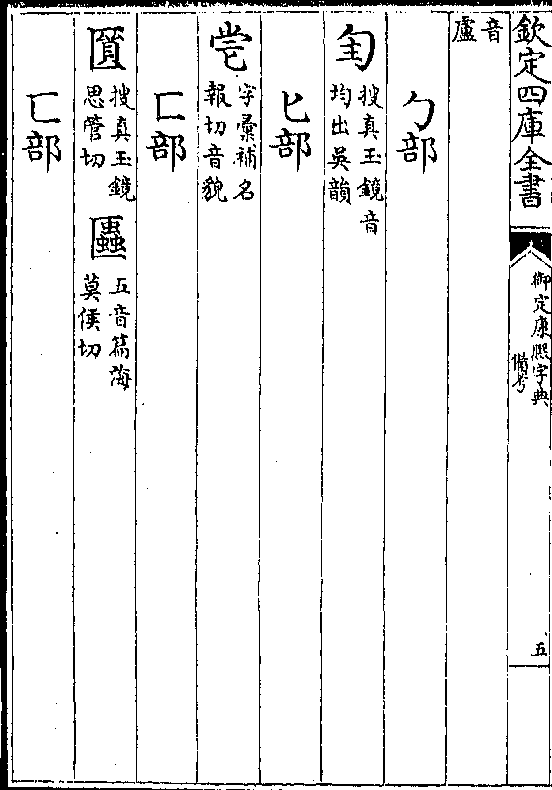 欽定四庫全書
御定康熙字典
備考
五
音
盧
勹部
搜真玉鏡音
均出吳韻
匕部
字彙補名
報切音貌
匚部
搜真玉鏡
思管切
五音篇海
莫侯切
匸部